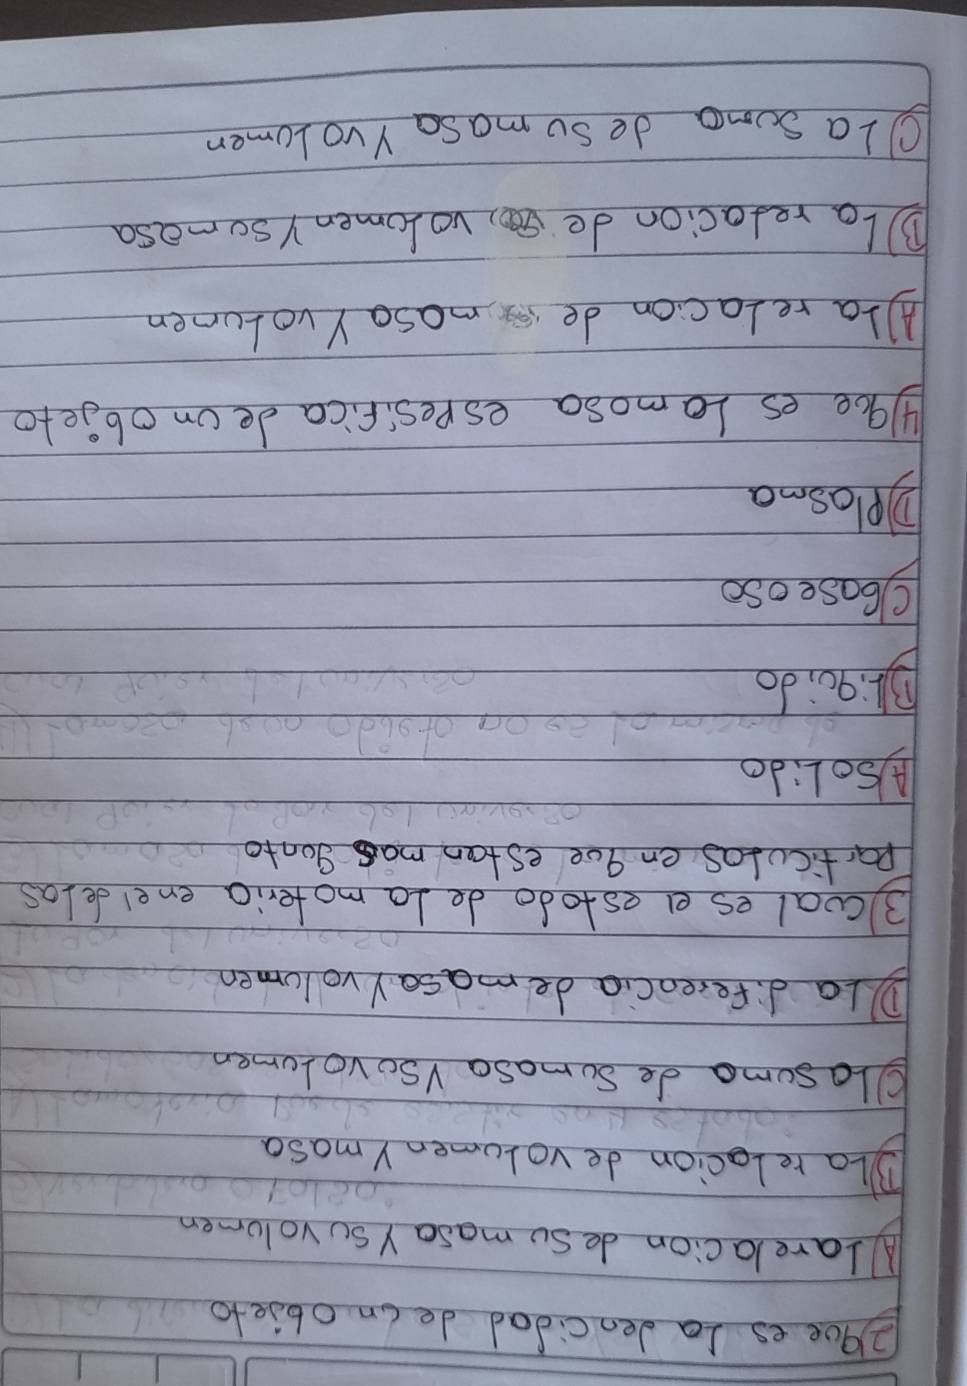 2) que es la dencidad de un objeto
A) La relacion de su masa y su volumen
B) La relacion de volumen y masa
C) La suma de su masa y su volumen
D) La diferencia de masa y volumen
3) cual es el estado de la materia en el de las
particulas en que estan mas junto
A) Solido
B) Liquido
C) Gaseoso
D) Plasma
4) que es la masa espesifica de un objeto
A) La relacion de masa y volumen
B) La relacion de volumen y su masa
C) La suma de su masa y volumen